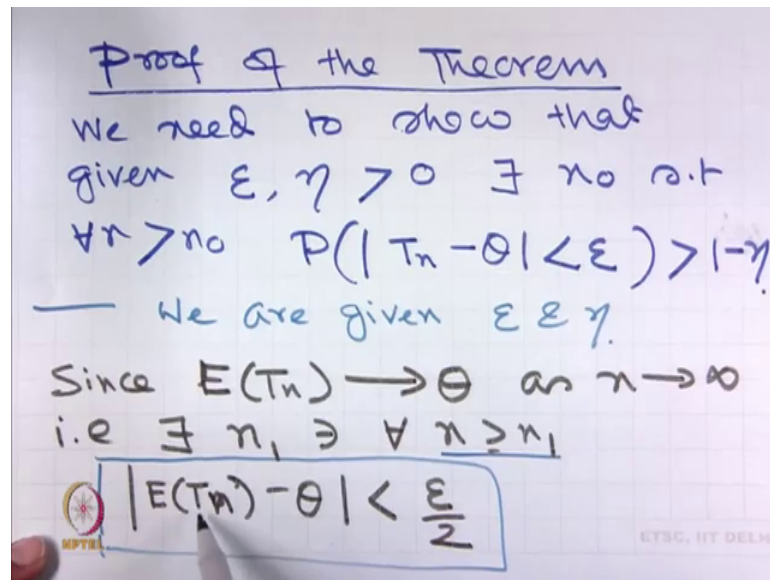 Proof of the Theorem
We need to show that
given ε, η > 0 ∃ no s.t
∀n > no P(| Tn - θ| < ε) > 1-η.
— We are given ε & η.
Since E(Tn) → θ as n → ∞
i.e ∃ n₁ ∋ ∀ n ≥ n₁
|E(Tn) - θ| < ε/2
NPTEL
ETSC, IIT DELH